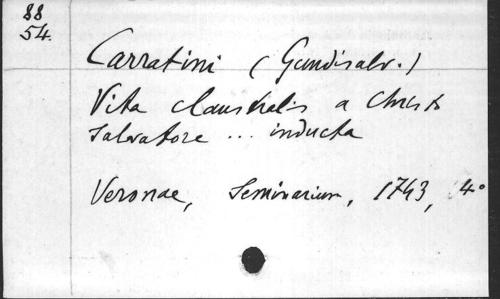 88
54.
Carratini (Gundisalv.)
Vita claustralis a Christo
Salvatore ... inducta
Veronae, Seminarium, 1743, 4°